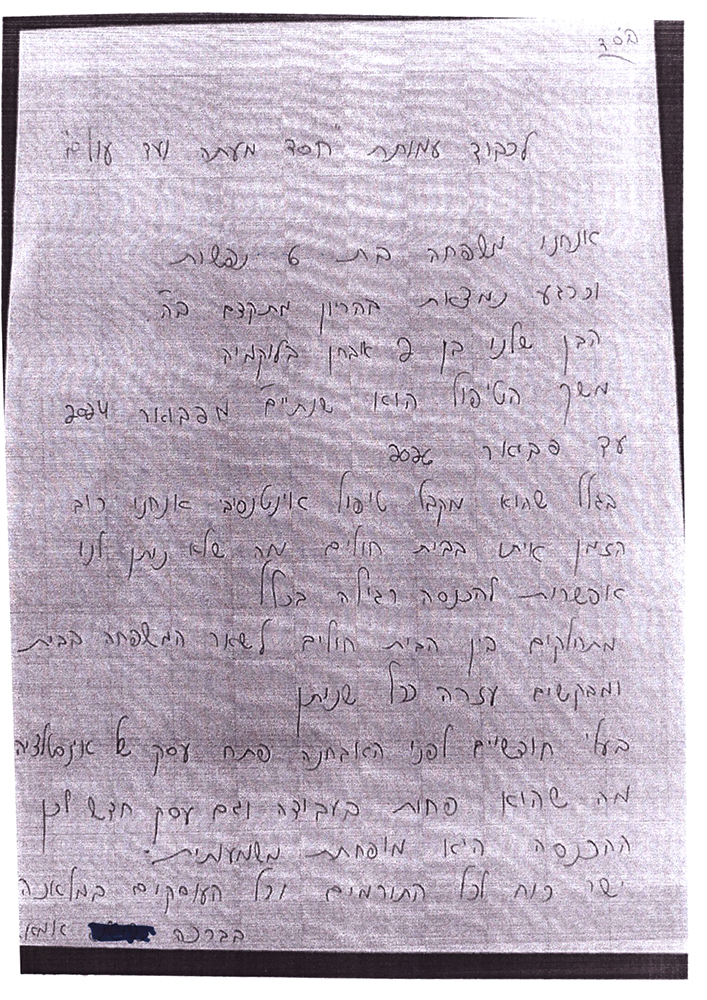 בס"ד
לכבוד עמותת "חסד מעתה ועד עולם"
אנחנו משפחה בת 6 נפשות
וכרגע נמצאת בהריון מתקדם ב"ה.
הבן שלנו בן 9 אובחן בלוקמיה
משך הטיפול הוא שנתיים מפבואר 2024
עד פביאר 2026
בגלל שהוא מקבל טיפול אינטנסיבי אנחנו רוב
הזמן איתו בבית חולים מה שלא ניתן לנו
אפשרות להכנסה רגילה בכלל
מתחלקים בין הבית חולים לשאר המשפחה בבית
ומבקשים עזרה ככל שניתן
בעלי חופשיים לפני האבחנה פתח עסק של אינסטלציה
מה שהוא פחות בעבודה וגם עסק חדש לכן
ההכנסה היא מופחתת משמעותית.
ישר כוח לכל התורמים וכל העוסקים במלאכה
בברכה אמא